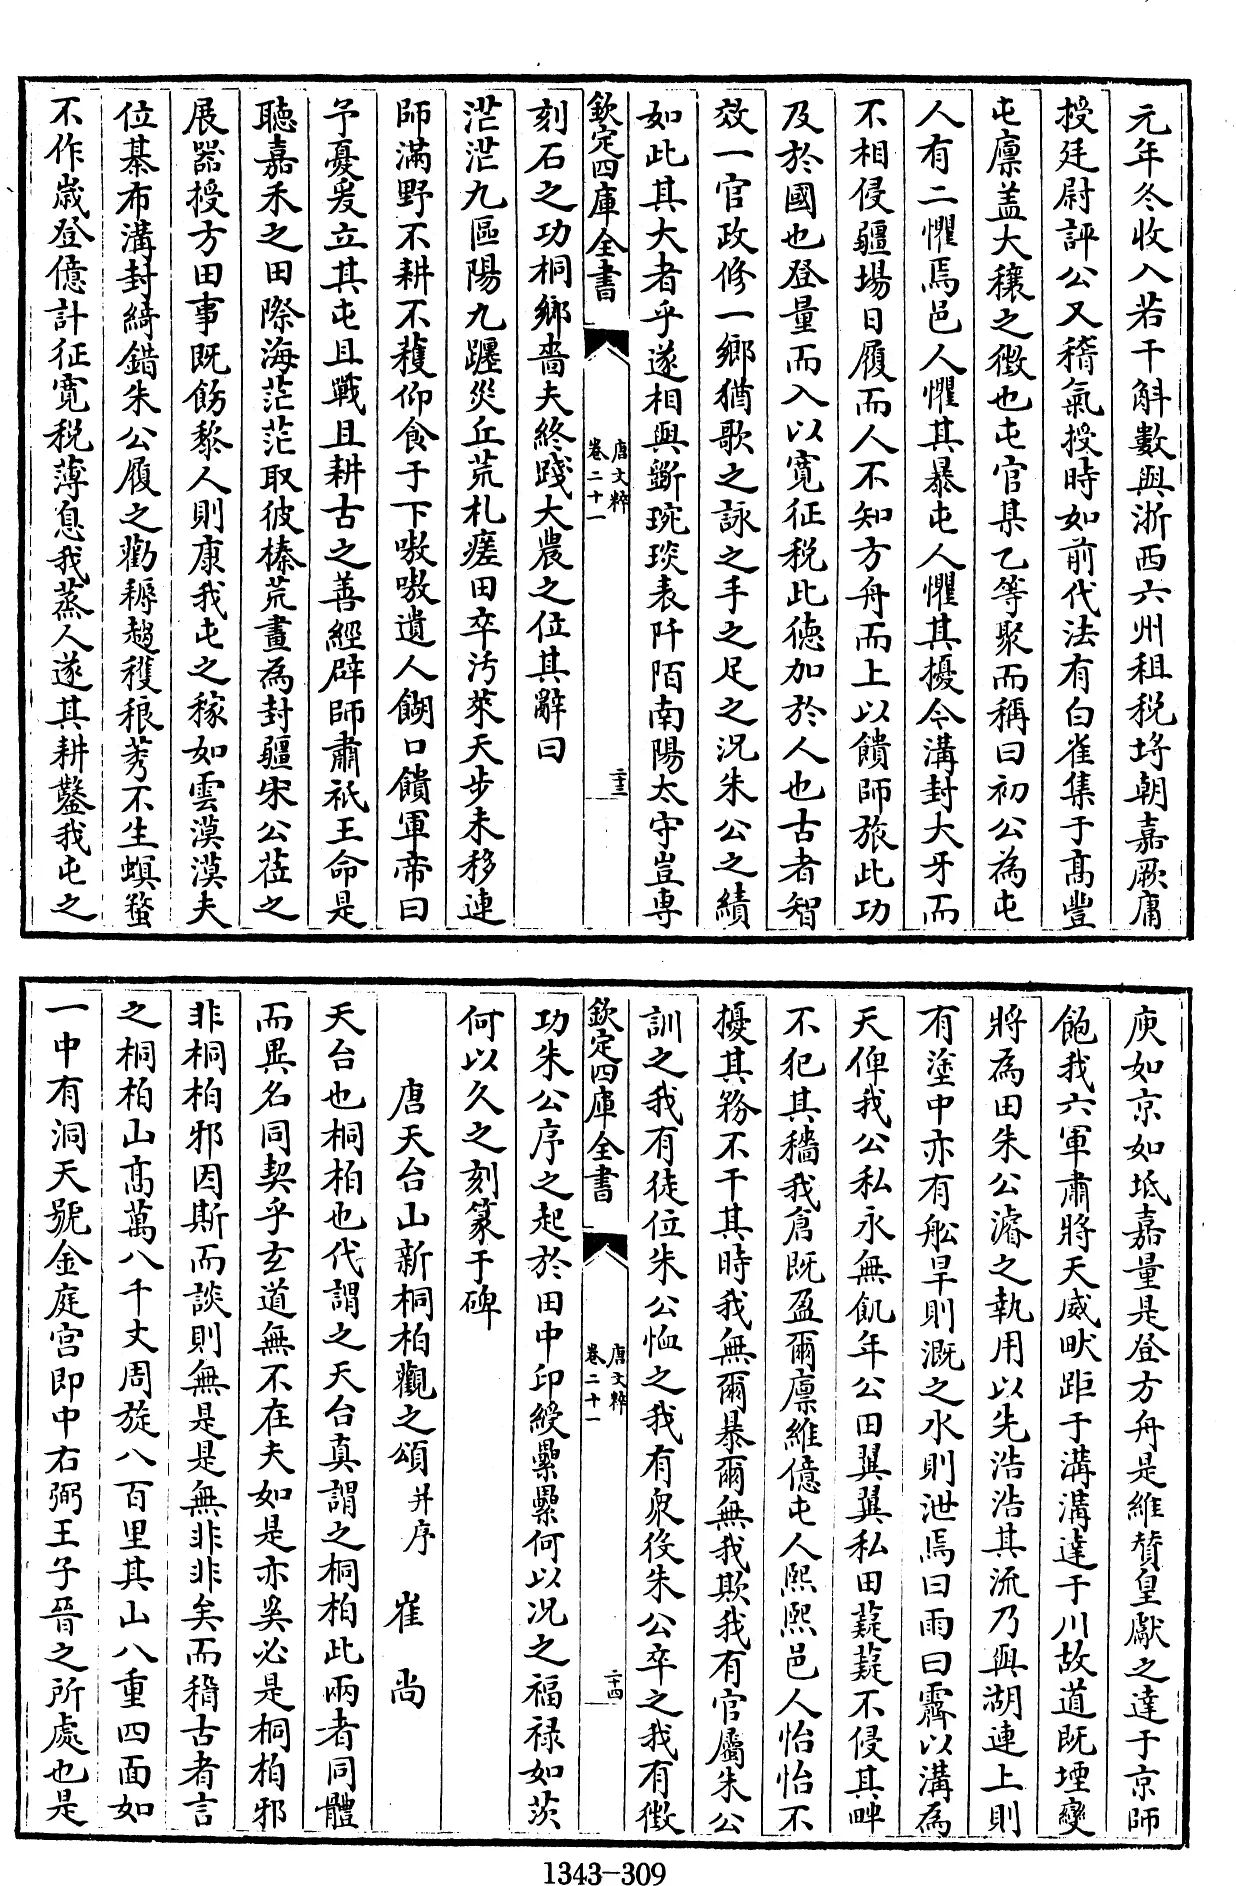 元年冬收入若干斛數與浙西六州租税埒朝嘉厥庸
授廷尉評公又稽氣授時如前代法有白雀集于髙豐
屯廪盖大穰之徴也屯官某乙等聚而稱曰初公為屯
人有二懼焉邑人懼其暴屯人懼其擾今溝封犬牙而
不相侵疆場日履而人不知方舟而上以饋師旅此功
及於國也登量而入以寛征税此徳加於人也古者智
效一官政修一鄉猶歌之詠之手之足之况朱公之績
如此其大者乎遂相與斵琬琰表阡陌南陽太守豈専
欽定四庫全書
唐文粹
卷二十一
二十三
刻石之功桐鄉嗇夫終踐大農之位其辭曰
茫茫九區陽九躔災丘荒札瘥田卒汚萊天步未移連
師滿野不耕不穫仰食于下嗷嗷遺人餬口饋軍帝曰
予憂爰立其屯且戰且耕古之善經辟師肅祇王命是
聽嘉禾之田際海茫茫取彼榛荒畫為封疆宋公莅之
展器授方田事既飭黎人則康我屯之稼如雲漠漠夫
位棊布溝封綺錯朱公履之勸耨趨穫稂莠不生螟蝥
不作嵗登億計征寛税薄息我蒸人遂其耕鑿我屯之
庾如京如坻嘉量是登方舟是維贊皇獻之達于京師
飽我六軍肅將天威畎距于溝溝達于川故道既堙變
將為田朱公濬之執用以先浩浩其流乃與湖連上則
有塗中亦有舩旱則溉之水則泄焉曰雨曰霽以溝為
天俾我公私永無飢年公田翼翼私田薿薿不侵其畔
不犯其穡我倉既盈爾廪維億屯人熙熙邑人怡怡不
擾其務不干其時我無爾暴爾無我欺我有官屬朱公
訓之我有徒位朱公恤之我有衆役朱公卒之我有徴
欽定四庫全書
唐文粹
卷二十一
二十四
功朱公序之起於田中印綬纍纍何以况之福禄如茨
何以久之刻篆于碑
唐天台山新桐柏觀之頌并序 崔尚
天台也桐柏也代謂之天台真謂之桐柏此兩者同體
而異名同契乎𤣥道無不在夫如是亦奚必是桐柏邪
非桐柏邪因斯而談則無是是無非非矣而稽古者言
之桐柏山髙萬八千丈周旋八百里其山八重四面如
一中有洞天號金庭宫即中右弼王子晉之所處也是
1343-309